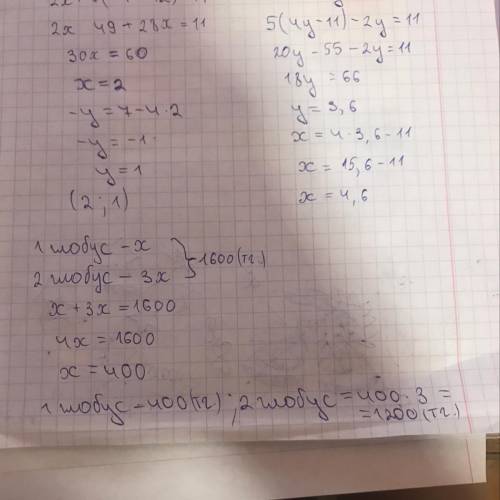 2x 49 + 28x = 11
30x = 60
x = 2
-y = 7 - 4 · 2
-y = -1
y = 1
(2 ; 1)
5(4y - 11) - 2y = 11
20y - 55 - 2y = 11
18y = 66
y = 3,6
x = 4 · 3,6 - 11
x = 15,6 - 11
x = 4,6
1 глобус - x
2 глобус - 3x
} 1600 (тг.)
x + 3x = 1600
4x = 1600
x = 400
1 глобус - 400 (тг) ; 2 глобус = 400 · 3 =
= 1200 (тг.)